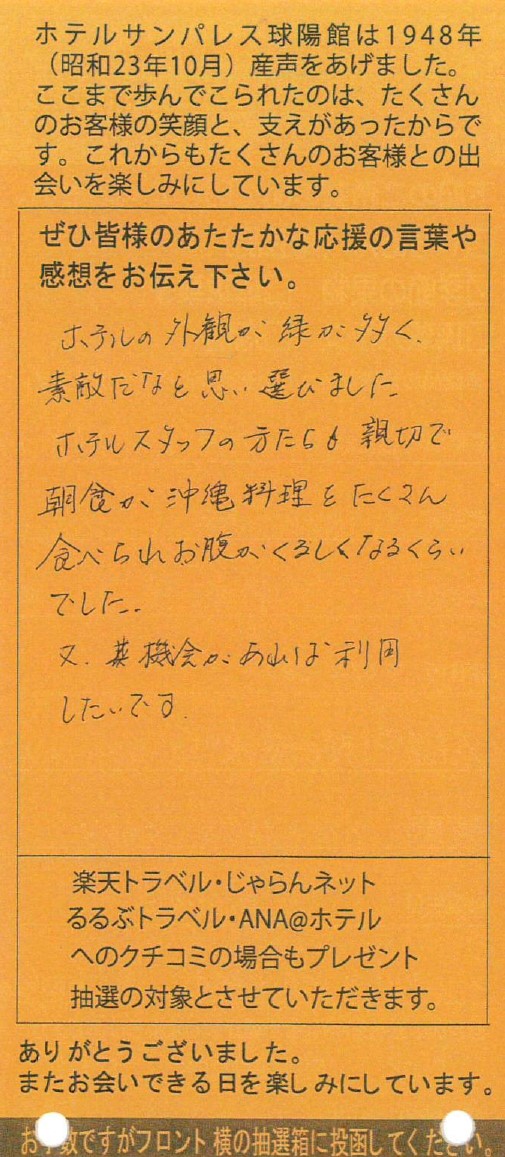 ホテルサンパレス球陽館は1948年
（昭和23年10月）産声をあげました。
ここまで歩んでこられたのは、たくさん
のお客様の笑顔と、支えがあったからで
す。これからもたくさんのお客様との出
会いを楽しみにしています。
ぜひ皆様のあたたかな応援の言葉や
感想をお伝え下さい。
ホテルの外観が緑が多く、
素敵だなと思い選びました
ホテルスタッフの方たちも親切で
朝食が沖縄料理をたくさん
食べられお腹がくるしくなるくらい
でした。
又、機会があれば利用
したいです。
楽天トラベル・じゃらんネット
るるぶトラベル・ANA@ホテル
へのクチコミの場合もプレゼント
抽選の対象とさせていただきます。
ありがとうございました。
またお会いできる日を楽しみにしています。
お手数ですがフロント横の抽選箱に投函してください。